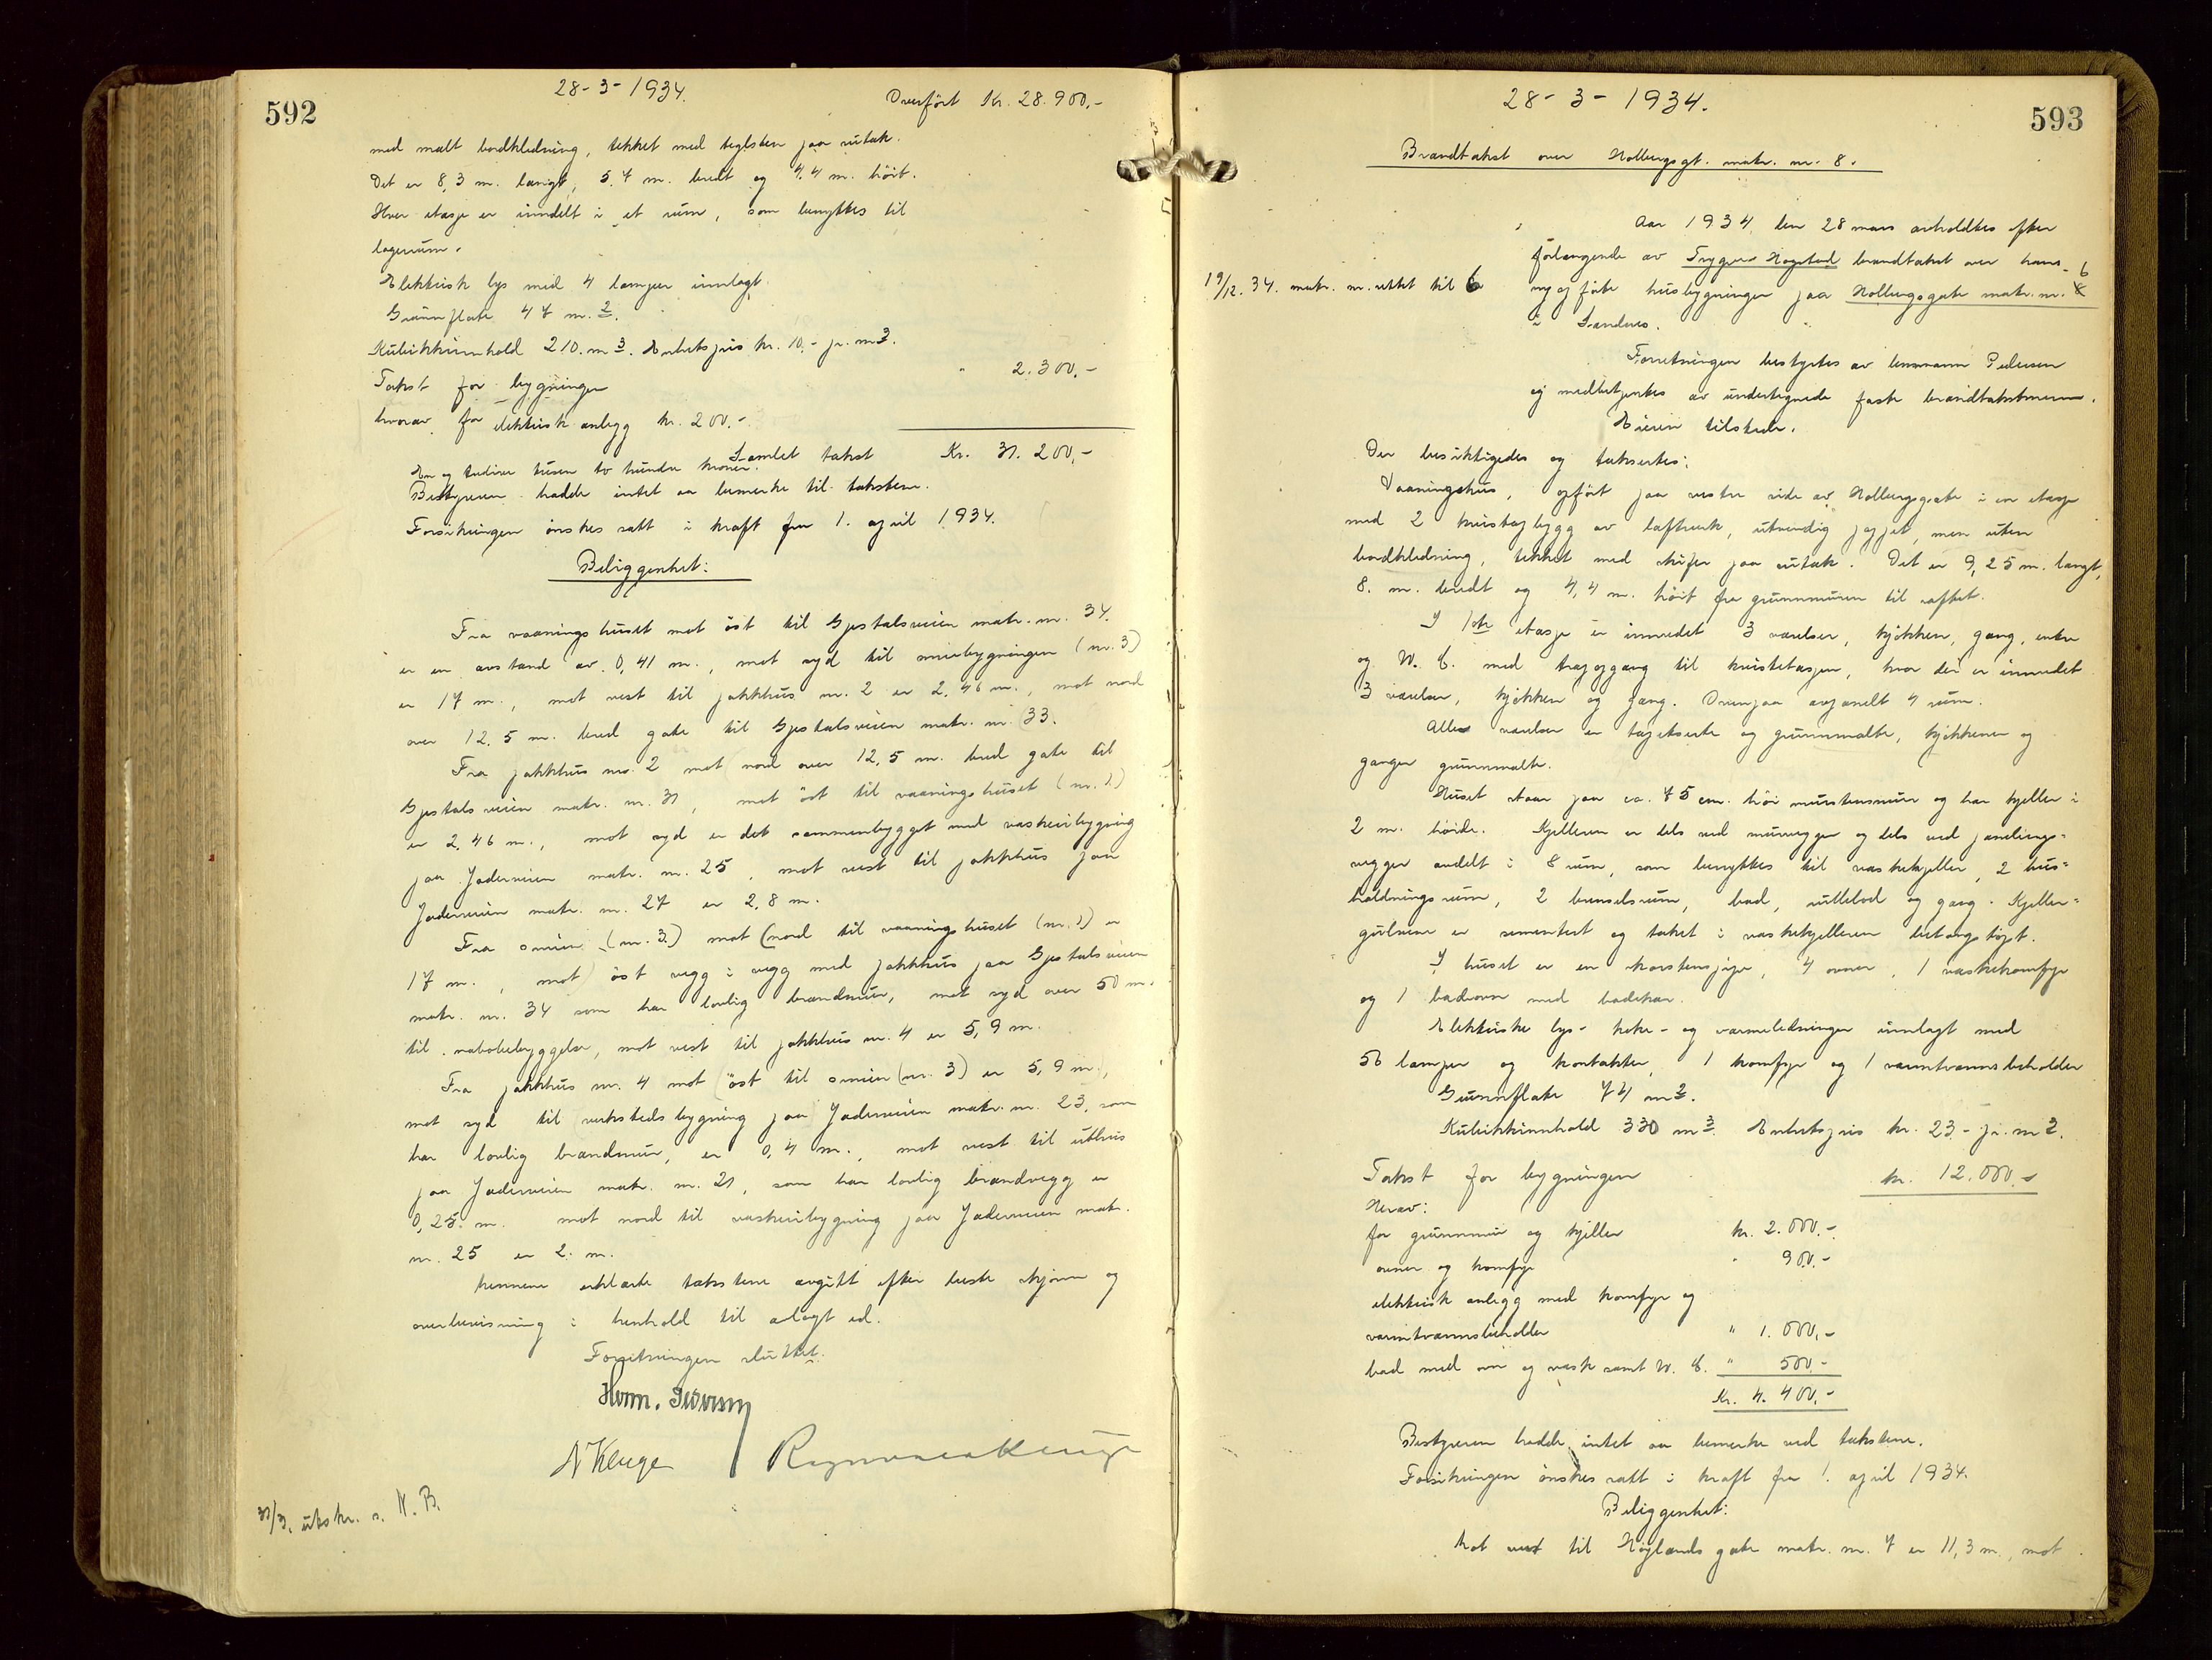 592
28-3-1934.
Overført Kr. 28.900.-
med malt bordkledning, tekket med teglsten paa rutak.
Det er 8,3 m. langt, 5.7 m. bredt og 4.4 m. höit.
Hver etasje er inndelt i et rum, som benyttes til
lagerrum.
Elektrisk lys med 4 lamper innlagt.
Grunnflate 47 m.2.
Kubikkinnhold 210. m3. Enhetspris kr. 10.- pr. m3.
Takst for bygningen " 2.300.-
hvorav for elektrisk anlegg kr. 200.-
Samlet takst Kr. 31.200,-
En og tredive tusen to hundre kroner.
Bestyreren hadde intet aa bemerke til takstene.
Forsikringen önskes satt i kraft fra 1. april 1934.
Beliggenhet:
Fra vaaningshuset mot öst til Gjestalsveien matr. nr. 34.
er en avstand av 0,41 m., mot syd til smiebygningen (nr. 3)
er 17 m., mot vest til pakkhus nr. 2 er 2.46 m., mot nord
over 12.5 m. bred gate til Gjestalsveien matr. nr. 33.
Fra pakkhus nr. 2 mot nord over 12,5 m. bred gate til
Gjestalsveien matr. nr. 31, mot öst til vaaningshuset (nr. 1)
er 2.46 m., mot syd er det sammenbygget med vaskeribygning
paa Jaderveien matr. nr. 25, mot vest til pakkhus paa
Jaderveien matr. nr. 27 er 2,8 m.
Fra smien (nr. 3.) mot (nord til vaaningshuset (nr. 1) er
17 m., mot öst vegg i vegg med pakkhus paa Gjestalsveien
matr. nr. 34 som har lovlig brandmur, mot syd over 50 m.
til nabobebyggelse, mot vest til pakkhus nr. 4 er 5,9 m.
Fra pakkhus nr. 4 mot öst til smien (nr. 3) er 5,9 m.,
mot syd til verkstedsbygning paa Jaderveien matr. nr. 23, som
har lovlig brandmur, er 0,4 m., mot vest til uthus
paa Jaderveien matr. nr. 21, som har lovlig brandvegg er
0,25. m. mot nord til vaskeribygning paa Jaderveien matr.
nr. 25 er 2. m.
Mennene erklærte takstene avgitt efter beste skjönn og
overbevisning i henhold til avlagt ed.
Forretningen sluttet.
Herm. Pedersen
N Kluge
31/3. utskr. s. N. B.
593
28-3-1934.
Brandtakst over Holbergsgt. matr. nr. 8.
Aar 1934, den 28 mars avholdtes efter
forlangende av Trygve Hogstad brandtakst over hans
19/12. 34. matr. nr. rettet til 6
nyopförte husbygninger paa Holbergsgate matr. nr. 8 6
i Sandnes.
Forretningen bestyrtes av lensmann Pedersen
og medbetjentes av undertegnede faste brandtakstmenn.
Eieren tilstede.
Der besiktigedes og taksertes:
Vaaningshus, opfört paa vestre side av Holbergsgate i en etasje
med 2 kvistopbygg av laftverk, utvendig pappet, men uten
bordkledning, tekket med skifer paa rutak. Det er 9,25 m. langt,
8. m. bredt og 4,4 m. höit fra grunnmuren til raftet.
I 1ste etasje er innredet 3 værelser, kjökken, gang, entre
og W. C. med trapopgang til kvistetasjen, hvor der er innredet
3 værelser, kjökken og gang. Ovenpaa avpanelt 4 rum.
Alle værelser er tapetserte og grunnmalte, kjökkener og
ganger grunnmalte.
Huset staar paa ca. 75 cm. höi murstensmur og har kjeller i
2 m. höide. Kjelleren er dels ved murvegger og dels ved panelings=
vegger avdelt i 8 rum, som benyttes til vaskekjeller, 2 hus=
holdningsrum, 2 brenselsrum, bad, rullebod og gang. Kjeller=
gulvene er sementert og taket i vaskekjelleren betongstöpt.
I huset er en skorstenspipe, 4 ovner, 1 vaskekomfyr
og 1 badeovn med badekar.
Elektriske lys- koke- og varmeledninger innlagt med
56 lamper og kontakter, 1 komfyr og 1 varmtvannsbeholder
Grunnflate 74 m2.
Kubikkinnhold 330 m3. Enhetspris kr. 23.- pr. m3.
Takst for bygningen kr. 12.000.-
Herav:
for grunnmur og kjeller kr. 2.000.-
ovner og komfyr " 900.-
elektrisk anlegg med komfyr og
varmtvannsbeholder " 1.000,-
bad med ovn og vask samt W. C. " 500.-
Kr. 4.400.-
Bestyreren hadde intet aa bemerke ved takstene.
Forsikringen önskes satt i kraft fra 1. april 1934.
Beliggenhet:
Mot vest til Höylandsgate matr. nr. 7 er 11,3 m., mot